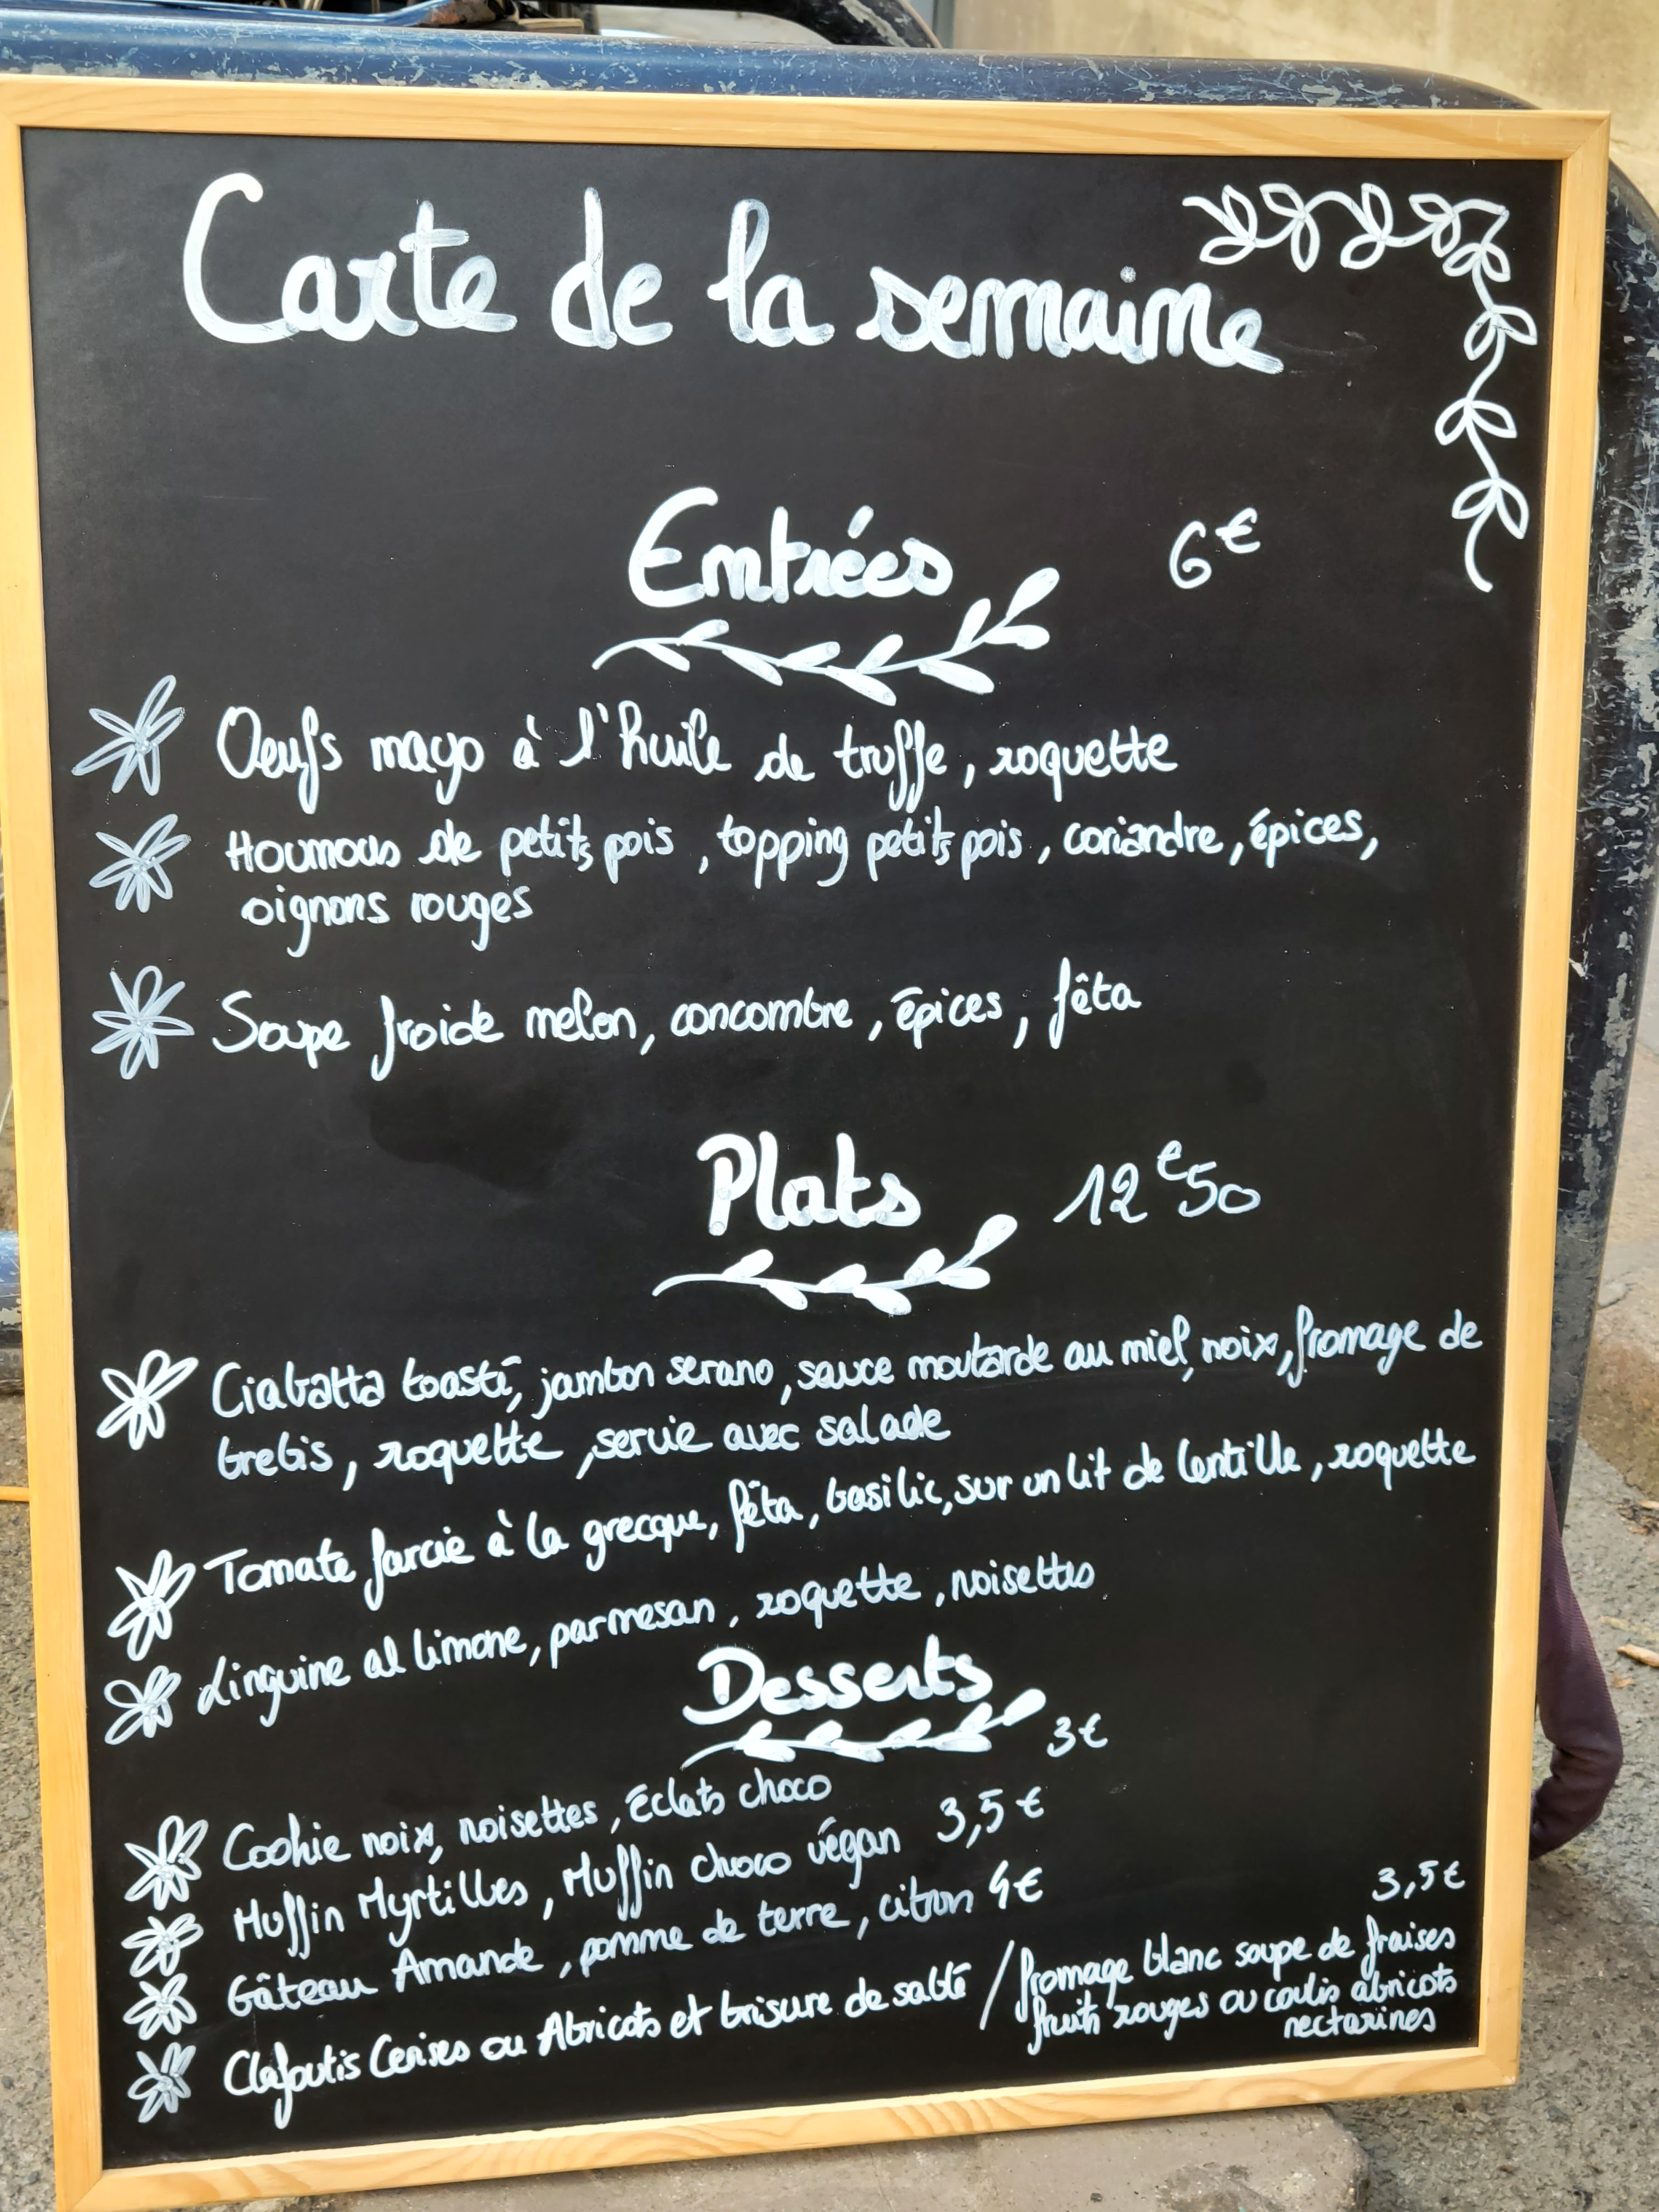 Carte de la semaine
Entrées 6€
Oeufs mayo à l'huile de truffe, roquette
Houmous de petits pois, topping petits pois, coriandre, épices,
oignons rouges
Soupe froide melon, concombre, épices, fêta
Plats 12€50
Ciabatta toasté, jambon serano, sauce moutarde au miel, noix, fromage de
brebis, roquette, servie avec salade
Tomate farcie à la grecque, fêta, basilic, sur un lit de lentille, roquette
Linguine al limone, parmesan, roquette, noisettes
Desserts
3€
Cookie noix, noisettes, éclats choco
Muffin Myrtilles, Muffin choco végan 3,5€
Gâteau Amande, pomme de terre, citron 4€
3,5€
Clafoutis Cerises ou Abricots et brisure de sablé / fromage blanc soupe de fraises
fruits rouges ou coulis abricots
nectarines